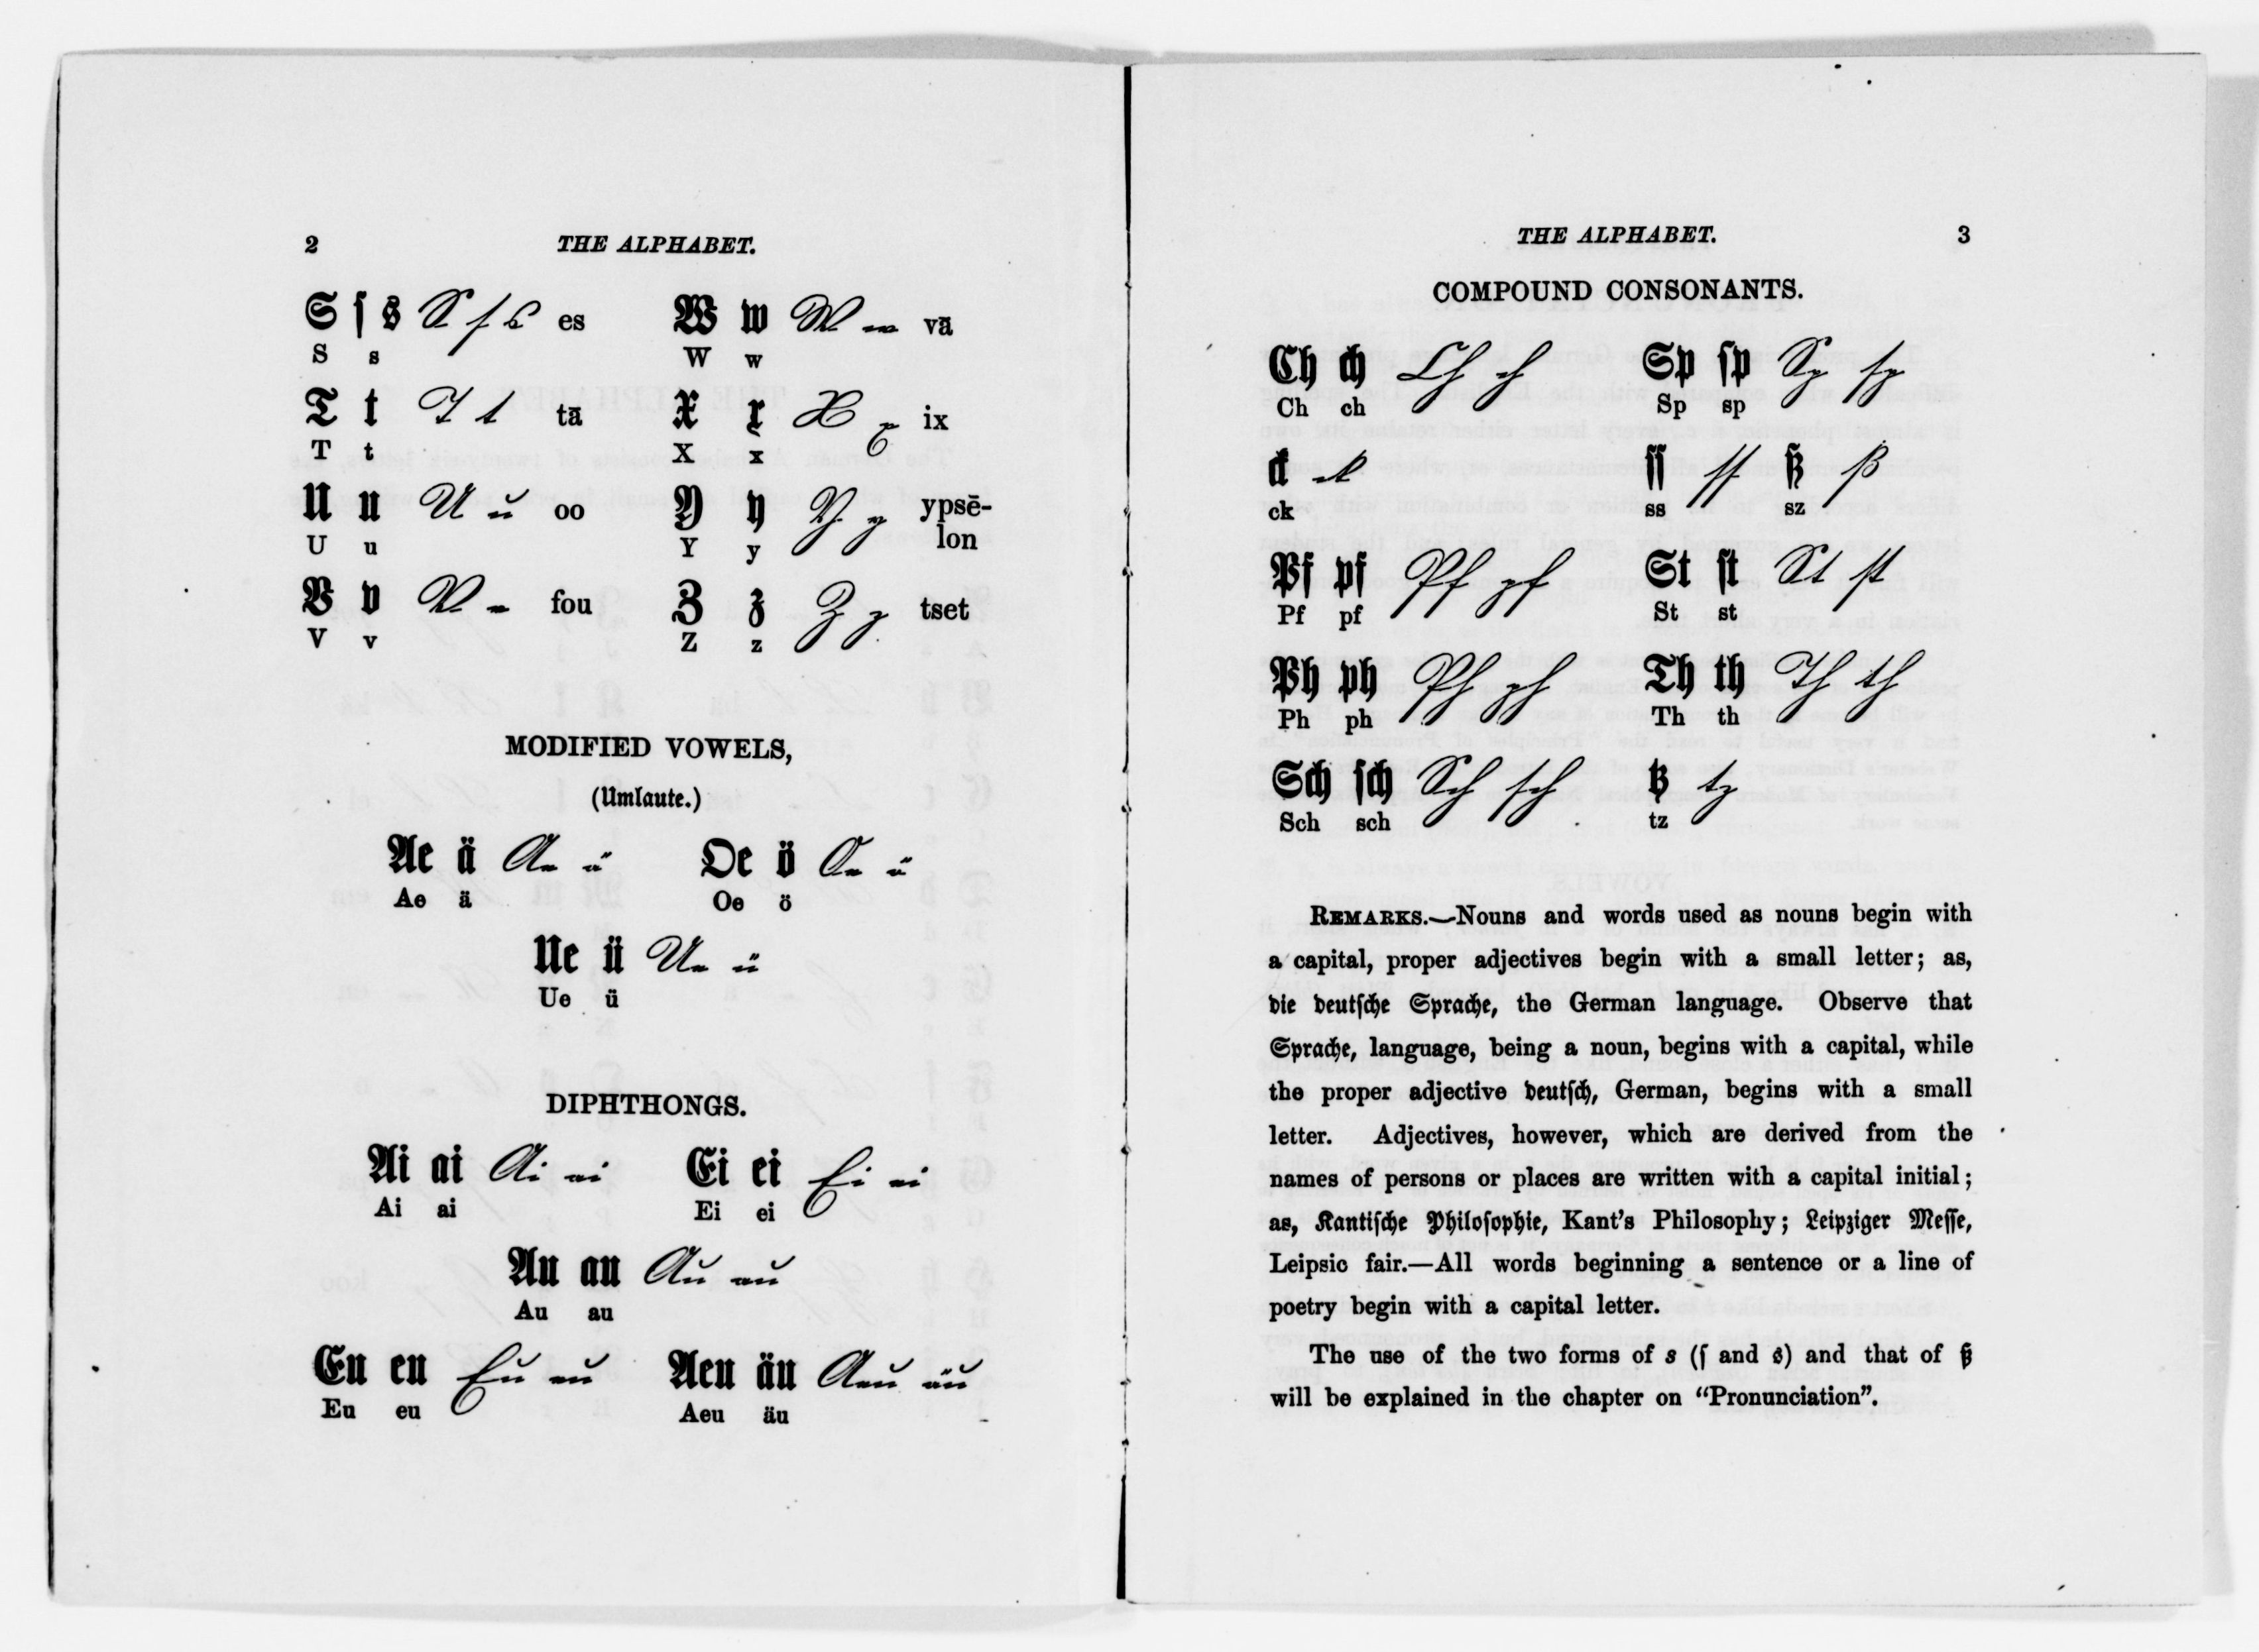 2 THE ALPHABET.
S ſ s S ſ s es W w W w vā
S s W w
T t T t tā X x X x ix
T t X x
U u U u oo Y y Y y ypsē-
U u Y y lon
V v V v fou Z z Z z tset
V v Z z
MODIFIED VOWELS,
(Umlaute.)
Ae ä Ae ä Oe ö Oe ö
Ae ä Oe ö
Ue ü Ue ü
Ue ü
DIPHTHONGS.
Ai ai Ai ai Ei ei Ei ei
Ai ai Ei ei
Au au Au au
Au au
Eu eu Eu eu Aeu äu Aeu äu
Eu eu Aeu äu
THE ALPHABET. 3
COMPOUND CONSONANTS.
Ch ch Ch ch Sp ſp Sp ſp
Ch ch Sp sp
ck ck ſſ ſſ ß ß
ck ss sz
Pf pf Pf pf St ſt St ſt
Pf pf St st
Ph ph Ph ph Th th Th th
Ph ph Th th
Sch ſch Sch ſch tz tz
Sch sch tz
REMARKS.—Nouns and words used as nouns begin with
a capital, proper adjectives begin with a small letter; as,
die deutſche Sprache, the German language. Observe that
Sprache, language, being a noun, begins with a capital, while
the proper adjective deutſch, German, begins with a small
letter. Adjectives, however, which are derived from the
names of persons or places are written with a capital initial;
as, Kantiſche Philoſophie, Kant's Philosophy; Leipziger Meſſe,
Leipsic fair.—All words beginning a sentence or a line of
poetry begin with a capital letter.
The use of the two forms of s (ſ and s) and that of ß
will be explained in the chapter on “Pronunciation”.